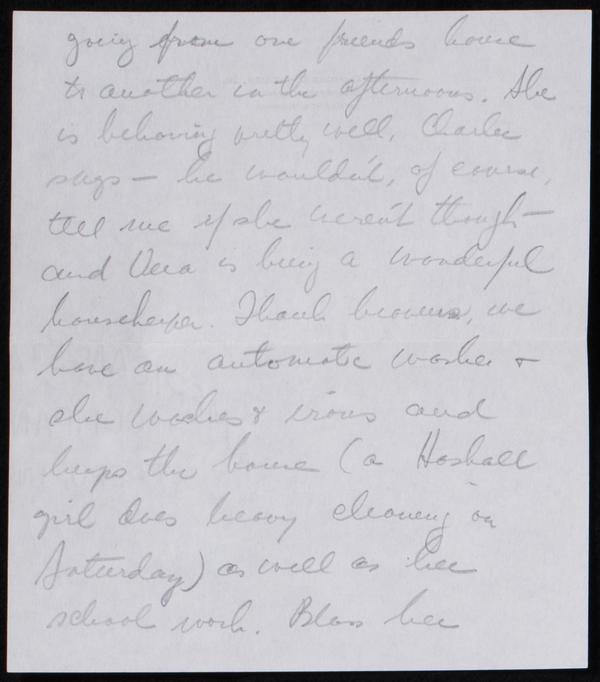 going from one friends house
to another in the afternoons. She
is behaving pretty well, Charlie
says — he wouldn't, of course,
tell me if she weren't though —
and Vera is being a wonderful
housekeeper. Thank heavens, we
have an automatic washer &
she washes & irons and
keeps the house (a Haskell
girl does heavy cleaning on
Saturday) as well as her
school work. Bless her